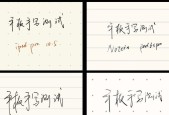 平板手写测试
ipad pro 10.5
平板手写测试
平板手写测试
平板手写测试